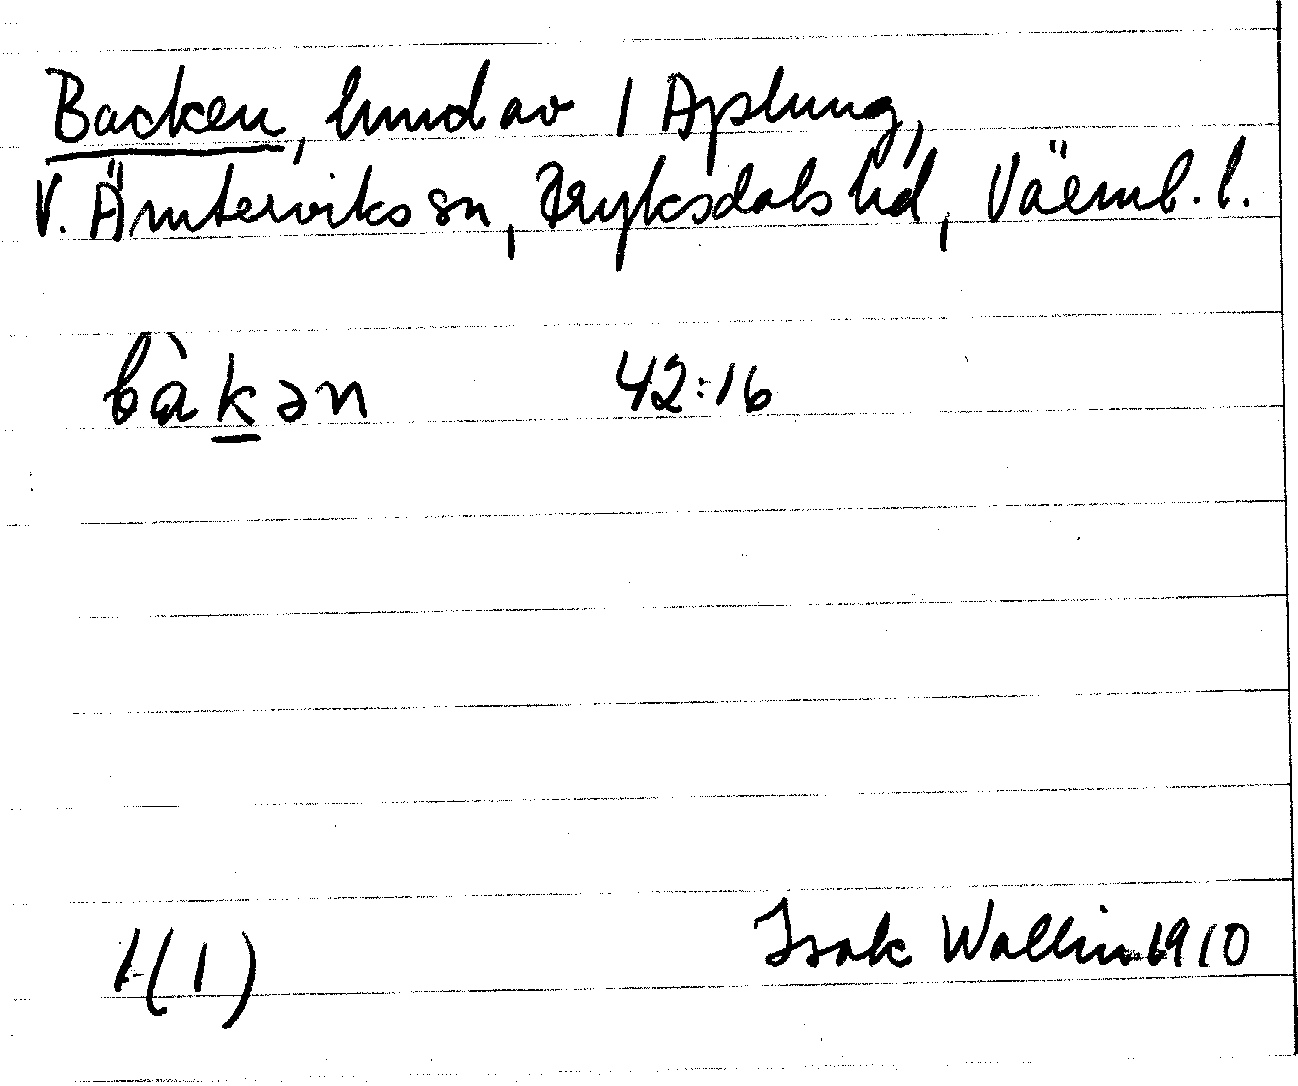 Backen, hmd av 1 Aplung,
V. Ämterviks sn, Fryksdals hd, Värml. l.
bàk̲ən 42:16
1(1) Isak Wallin 1910